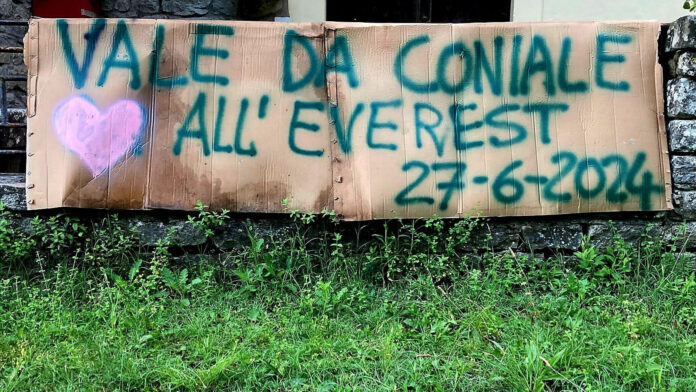 VALE DA CONIALE
ALL' EVEREST
27-6-2024